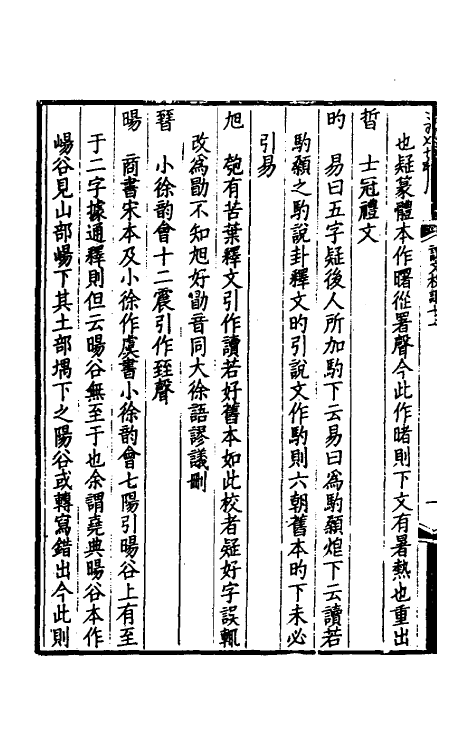 也疑篆體本作曙從署聲今此作暏則下文有暑熱也重出
晢　士冠禮文
旳　易曰五字疑後人所加馰下云易曰爲馰顙㷇下云讀若
馰顙之馰說卦釋文旳引說文作馰則六朝舊本旳下未必
引易
旭　匏有苦葉釋文引作讀若好舊本如此校者疑好字誤輒
改爲勖不知旭好勖音同大徐語謬議刪
㬜　小徐韵會十二震引作臸聲
暘　商書宋本及小徐作虞書小徐韵會七陽引暘谷上有至
于二字據通釋則但云暘谷無至于也余謂堯典暘谷本作
崵谷見山部崵下其土部堣下之陽谷或轉寫錯出今此則